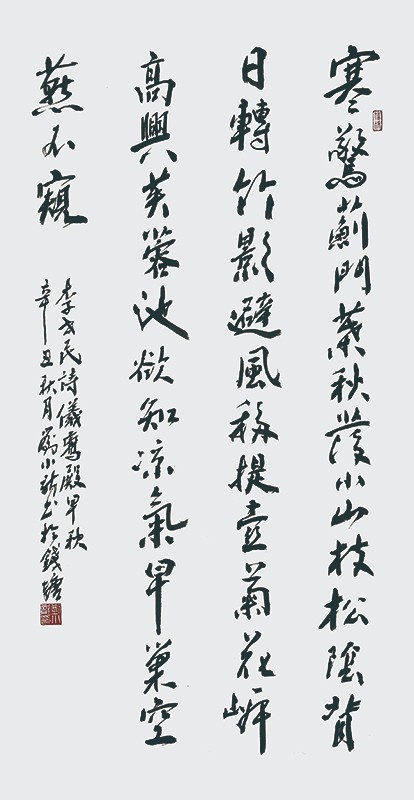 寒驚薊門葉秋發小山枝松陰背
日轉竹影避風移提壺菊花岸
高興芙蓉池欲知涼氣早巢空
燕不窺
李世民詩儀鸞殿早秋
辛丑秋月小書於錢塘